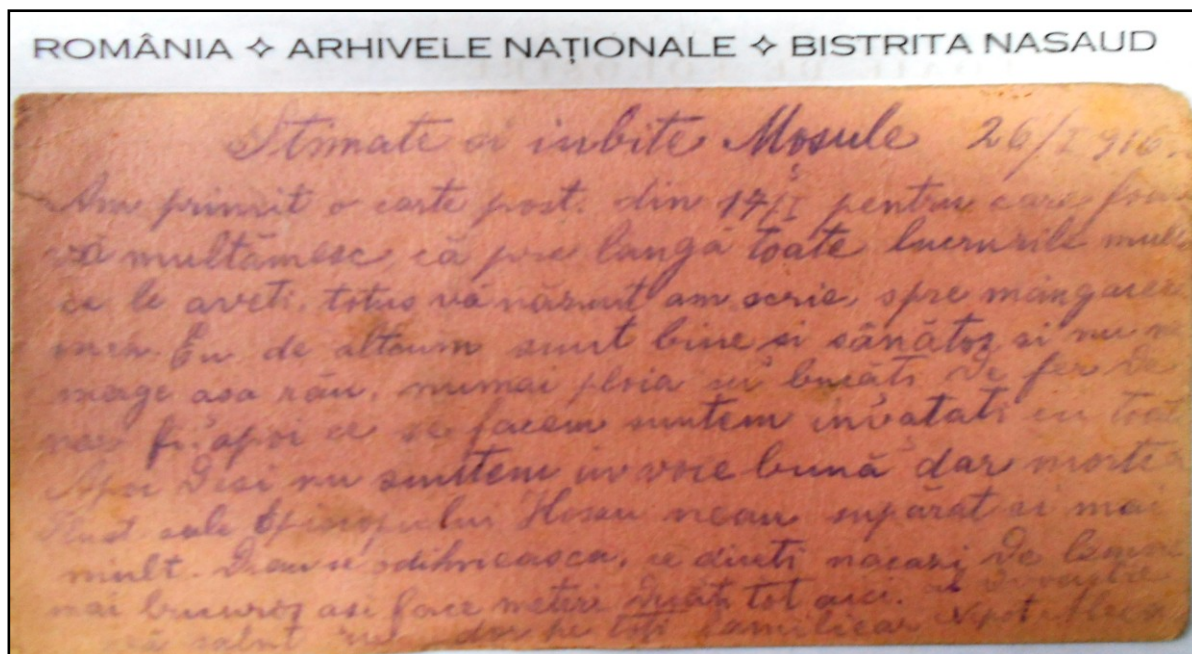 ROMÂNIA ✧ ARHIVELE NAȚIONALE ✧ BISTRITA NASAUD
Stimate si iubite Mosule 26/I 916.
Am primit o carte post. din 14/I pentru care
vă multămesc, că pre langă toate lucrurile
ce le aveti, totus vă năzuit am scrie, spre mângaere
mea. Eu de altcum sunt bine si sănătoz si nu
merge asa rău, numai ploia cu bucăti de fer de
nar fi, apoi ce se facem suntem invătati cu toat
Apoi desi nu suntem in voie bună dar morte
sale Episcopului Hossu neau supărat si mai
mult. odihneasca, ce diceti de
mai bucuroz asi face metere decăt tot aici. al
vă salut cu dor pe toti Nepot